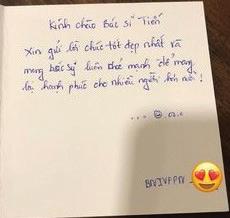 Kính chào bác sĩ Tiến
Xin gửi lời chúc tốt đẹp nhất và
mong bác sỹ luôn khoẻ mạnh để mang
lại hạnh phúc cho nhiều người hơn nữa!